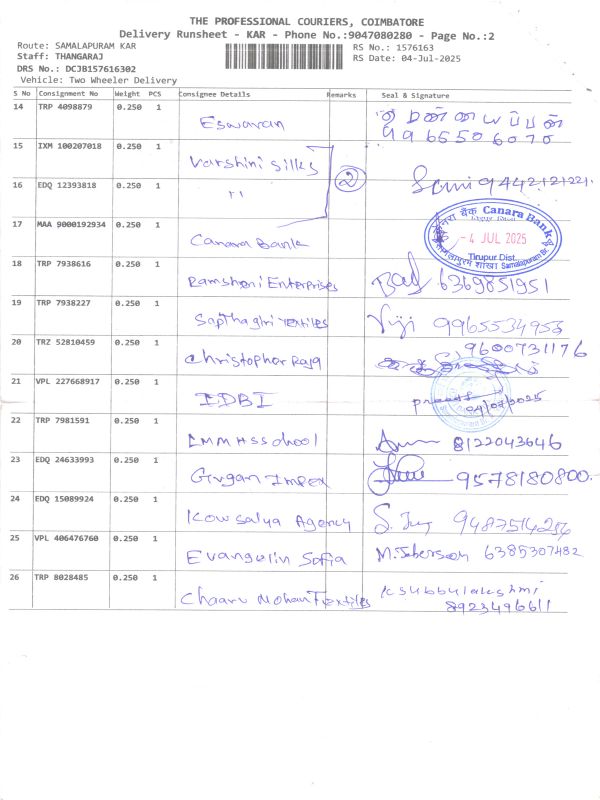 THE PROFESSIONAL COURIERS, COIMBATORE
Delivery Runsheet - KAR - Phone No.:9047080280 - Page No.:2
Route: SAMALAPURAM KAR
RS No.: 1576163
Staff: THANGARAJ
RS Date: 04-Jul-2025
DRS No.: DCJB157616302
Vehicle: Two Wheeler Delivery
S No Consignment No Weight PCS Consignee Details Remarks Seal & Signature
14 TRP 4098879 0.250 1 Eswaran
9965506070
15 IXM 100207018 0.250 1 Varshini Silks
2
16 EDQ 12393818 0.250 1 "
17 MAA 9000192934 0.250 1 Canara Bank
Canara Bank
- 4 JUL 2025
Tirupur Dist.
शाखा Samalapuram Br.
18 TRP 7938616 0.250 1 Enterprises 6369851951
19 TRP 7938227 0.250 1 Viji 9965534956
20 TRZ 52810459 0.250 1 Christopher Raja 9600731176
21 VPL 227668917 0.250 1 IDBI
04/07/2025
22 TRP 7981591 0.250 1 8122043646
23 EDQ 24633993 0.250 1 Impex 9578180800.
24 EDQ 15089924 0.250 1 Kowsalya Agency
25 VPL 406476760 0.250 1 Evangelin Sofia 6385307482
26 TRP 8028485 0.250 1 Chaaru Mohan Textiles K subbulakshmi
8923496611